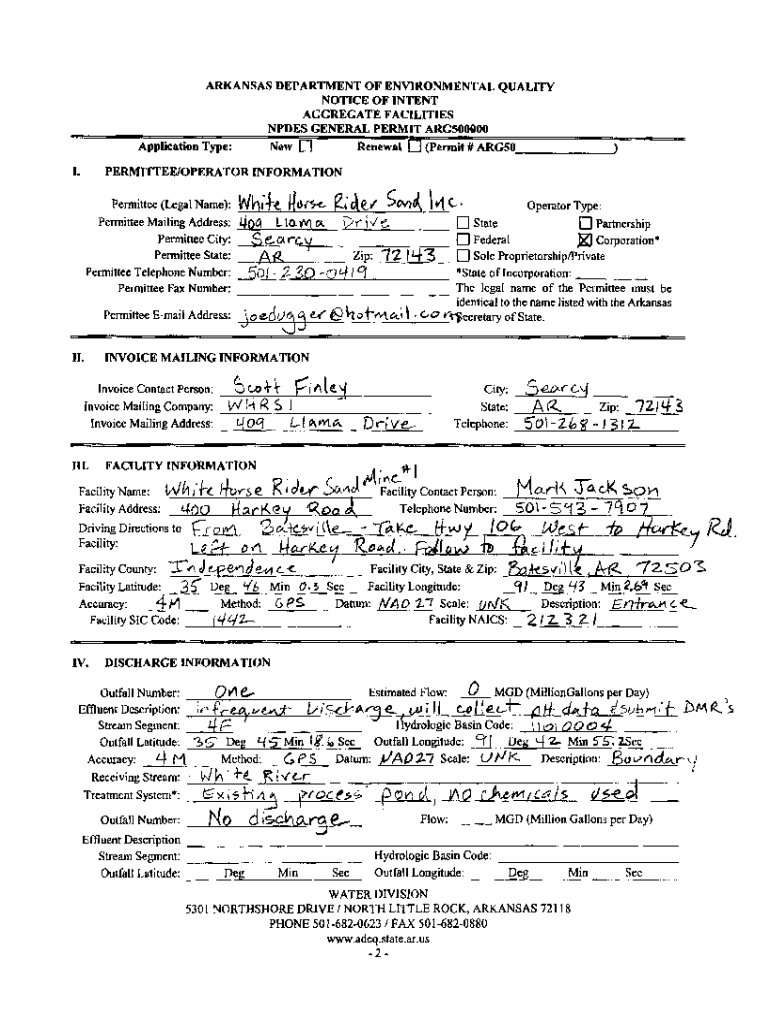 ARKANSAS DEPARTMENT OF ENVIRONMENTAL QUALITY
NOTICE OF INTENT
AGGREGATE FACILITIES
NPDES GENERAL PERMIT ARG500000
Application Type: New Renewal (Permit # ARG50 )
I. PERMITTEE/OPERATOR INFORMATION
Permittee (Legal Name): White Horse Rider Sand Inc. Operator Type:
Permittee Mailing Address: 409 Llama Drive State Partnership
Permittee City: Searcy Federal Corporation*
Permittee State: AR Zip: 72143 Sole Proprietorship/Private
Permittee Telephone Number: 501-230-0419 *State of Incorporation:
Permittee Fax Number: The legal name of the Permittee must be
identical to the name listed with the Arkansas
Permittee E-mail Address: joedugger@hotmail.com Secretary of State.
II. INVOICE MAILING INFORMATION
Invoice Contact Person: Scott Finley City: Searcy
Invoice Mailing Company: WHRSI State: AR Zip: 72143
Invoice Mailing Address: 409 Llama Drive Telephone: 501-268-1312
III. FACILITY INFORMATION
Facility Name: White Horse Rider Sand Mine #1 Facility Contact Person: Mark Jackson
Facility Address: 400 Harkey Road Telephone Number: 501-593-7907
Driving Directions to From Batesville - Take Hwy 106 West to Harkey Rd.
Facility: Left on Harkey Road. Follow to facility
Facility County: Independence Facility City, State & Zip: Batesville, AR 72503
Facility Latitude: 35 Deg 46 Min 0.3 Sec Facility Longitude: 91 Deg 43 Min 2.69 Sec
Accuracy: 4M Method: GPS Datum: NAD27 Scale: UNK Description: Entrance
Facility SIC Code: 1442 Facility NAICS: 212321
IV. DISCHARGE INFORMATION
Outfall Number: One Estimated Flow: 0 MGD (MillionGallons per Day)
Effluent Description: infrequent Discharge, will collect pH data & submit DMR's
Stream Segment: 4F Hydrologic Basin Code: 11010004
Outfall Latitude: 35 Deg 45 Min 18.6 Sec Outfall Longitude: 91 Deg 42 Min 55.2 Sec
Accuracy: 4M Method: GPS Datum: NAD27 Scale: UNK Description: Boundary
Receiving Stream: White River
Treatment System*: Existing process pond, no chemicals used
Outfall Number: No discharge Flow: MGD (Million Gallons per Day)
Effluent Description
Stream Segment: Hydrologic Basin Code:
Outfall Latitude: Deg Min Sec Outfall Longitude: Deg Min Sec
WATER DIVISION
5301 NORTHSHORE DRIVE / NORTH LITTLE ROCK, ARKANSAS 72118
PHONE 501-682-0623 / FAX 501-682-0880
www.adeq.state.ar.us
- 2 -